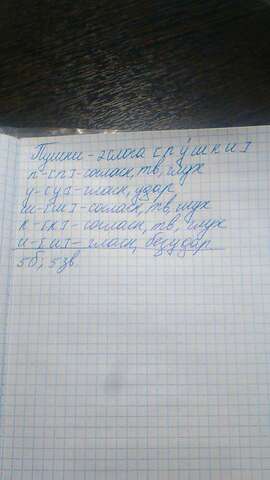 Пушки - 2 слога [п у́ ш к и]
п - [п] - согласн, тв, глух
у - [у] - гласн, удар
ш - [ш] - согласн, тв, глух
к - [к] - согласн, тв, глух
и - [и] - гласн, безудар
5б, 5зв